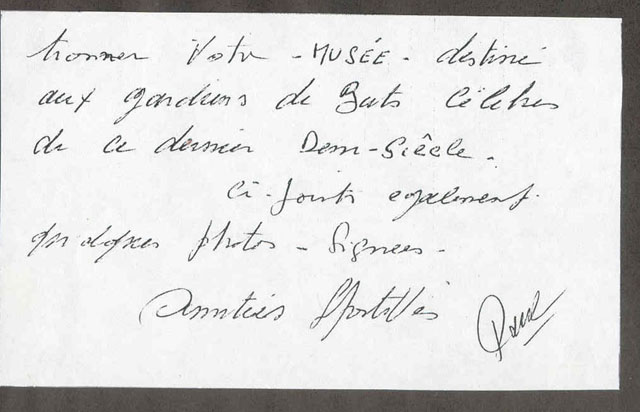 tronner Votre - MUSÉE - destiné
aux gardiens de Buts Célèbres
de ce dernier Demi-Siècle.
Ci-joints également
quelques photos - Signées -
Amitiés Sportives